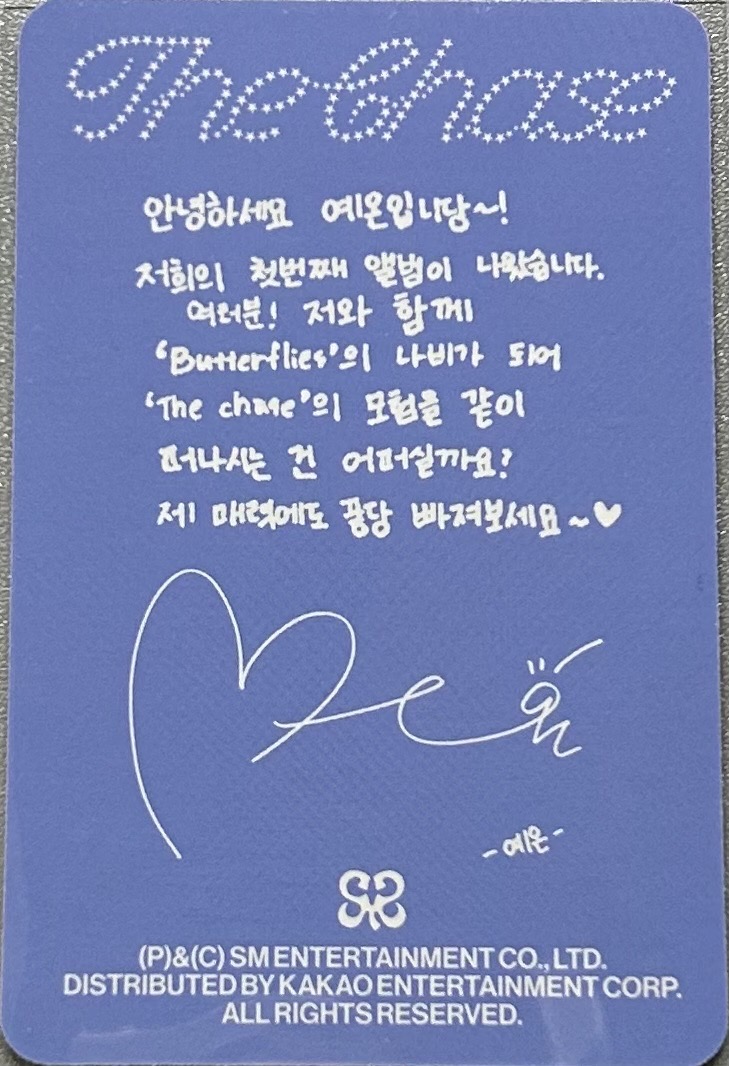 The Chase
안녕하세요 예온입니당~!
저희의 첫번째 앨범이 나왔습니다.
여러분! 저와 함께
'Butterflies'의 나비가 되어
'The chase'의 모험을 같이
떠나시는 건 어떠실까요?
제 매력에도 퐁당 빠져보세요~♥
-예온-
(P)&(C) SM ENTERTAINMENT CO., LTD.
DISTRIBUTED BY KAKAO ENTERTAINMENT CORP.
ALL RIGHTS RESERVED.